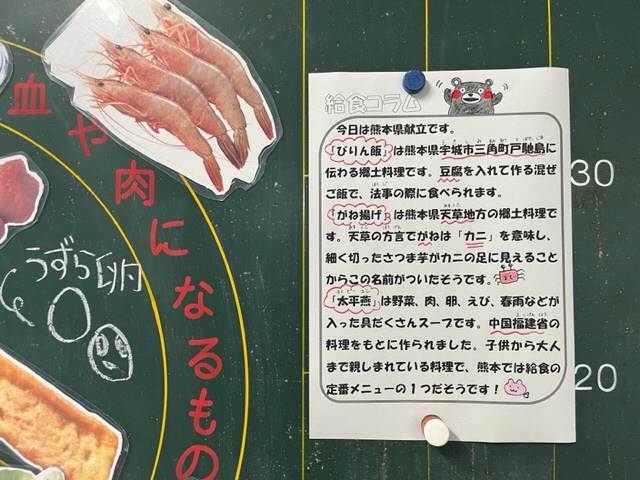 血や肉になるもの
うずら卵
給食コラム
今日は熊本県献立です。
「びりん飯」は熊本県宇城市三角町戸馳島に
伝わる郷土料理です。豆腐を入れて作る混ぜ
ご飯で、法事の際に食べられます。
「がね揚げ」は熊本県天草地方の郷土料理で
す。天草の方言でがねは「カニ」を意味し、
細く切ったさつま芋がカニの足に見えること
からこの名前がついたそうです。
「太平燕」は野菜、肉、卵、えび、春雨などが
入った具だくさんスープです。中国福建省の
料理をもとに作られました。子供から大人
まで親しまれている料理で、熊本では給食の
定番メニューの1つだそうです！
30
20